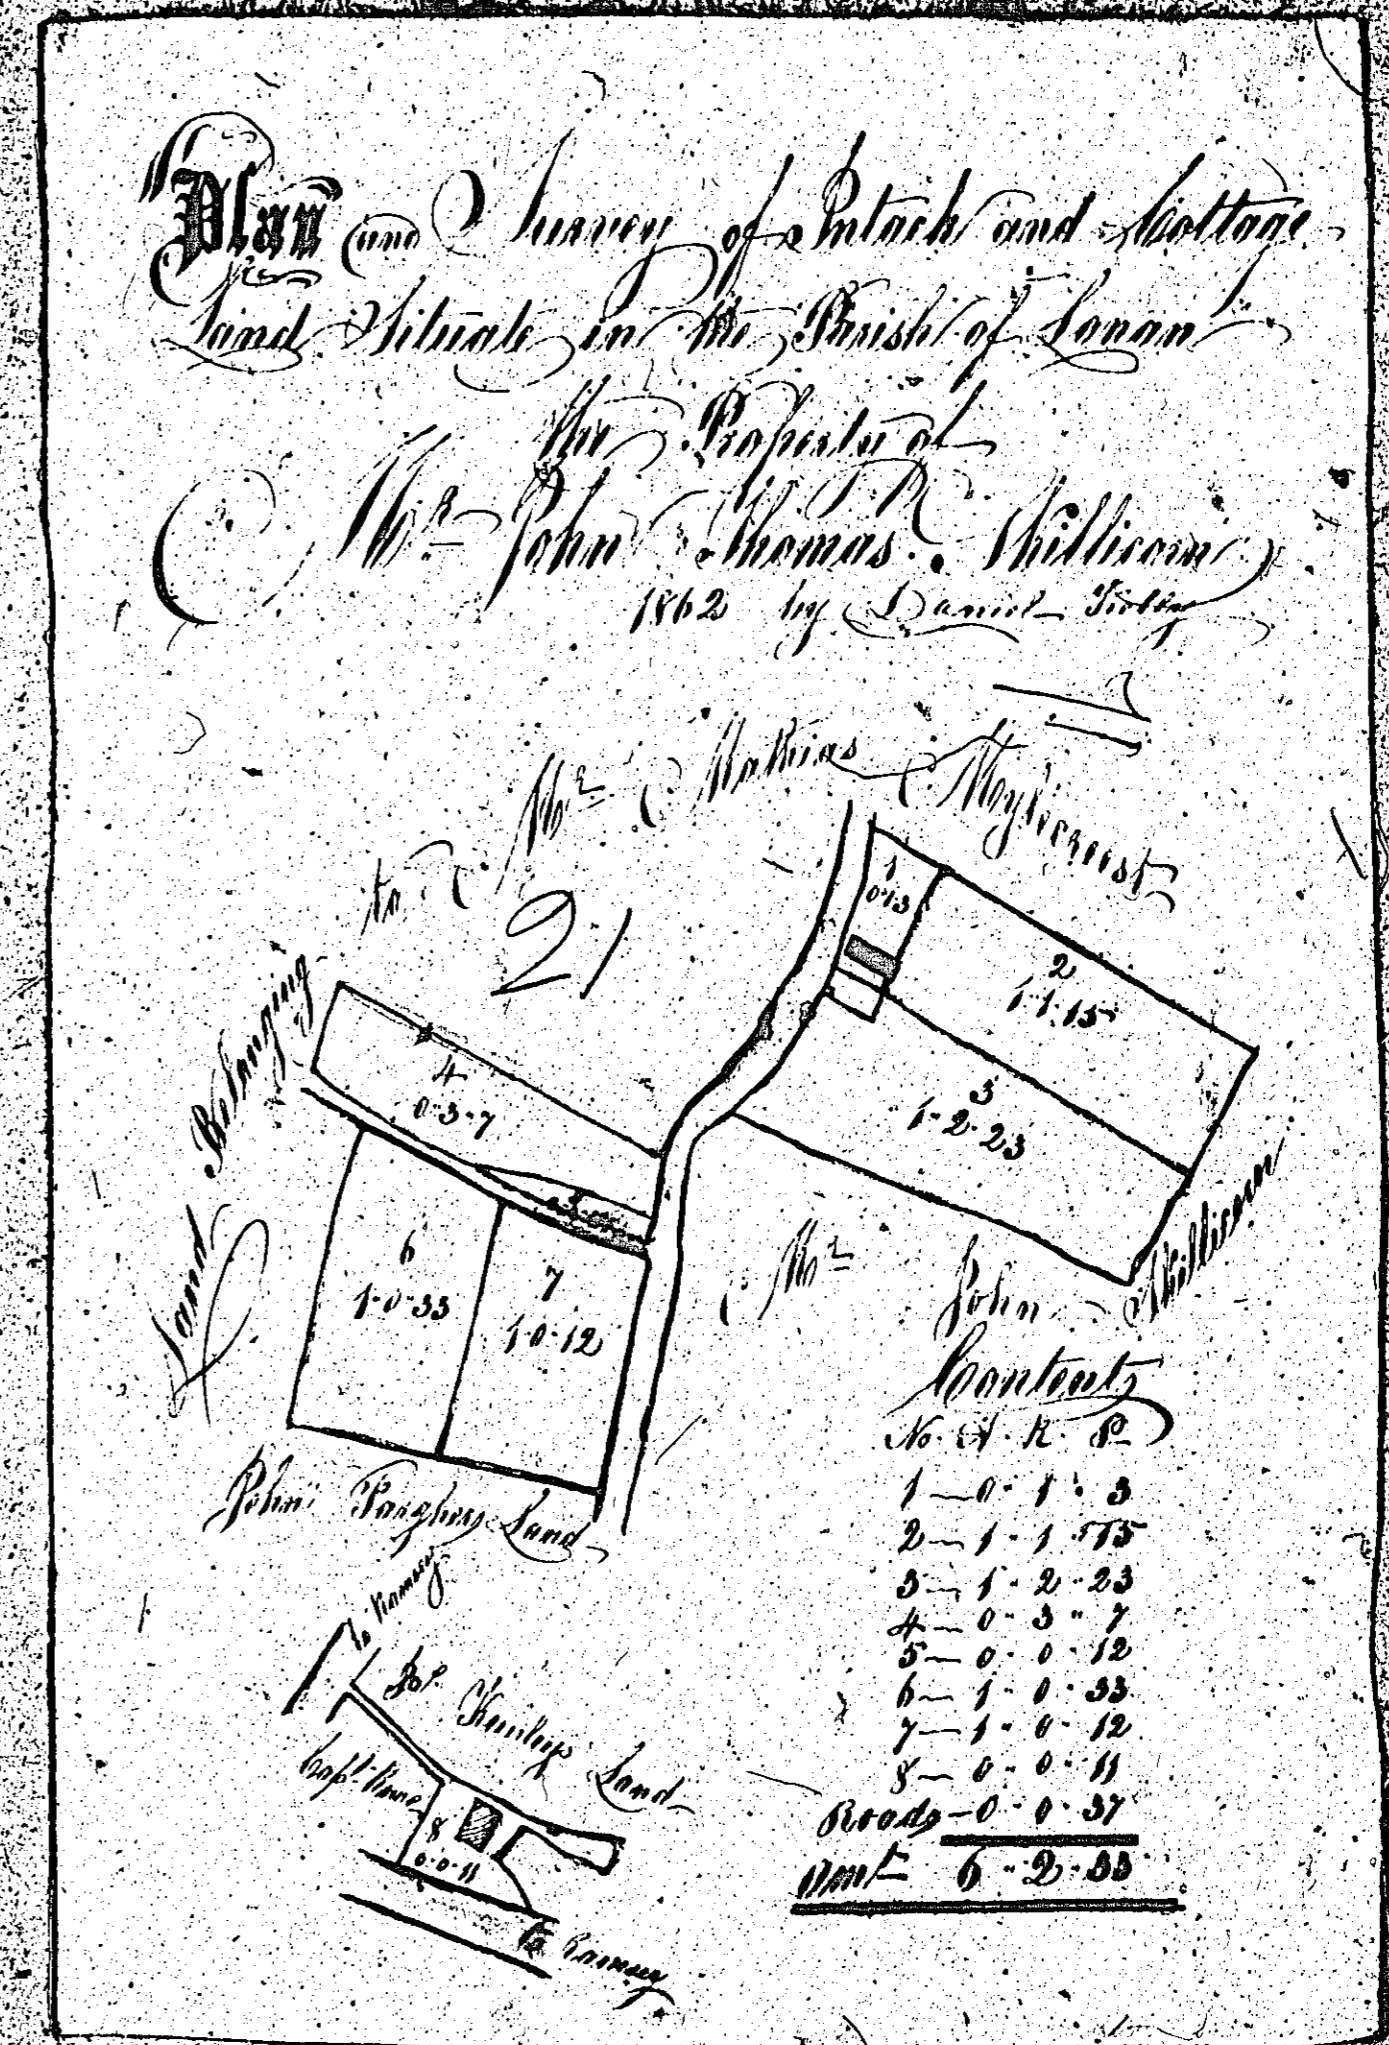 Plan and Survey of Intack and Cottage
Land Situate in the Parish of Lonan
the Property of
Mr John Thomas Skillicorn
1862 by Daniel
to Mr Mathias
21
Land Belonging
1
0·1·3
2
1·1·15
3
1·2·23
4
0·3·7
6
1·0·33
7
1·0·12
Mr John Skillicorn
John Land
To Ramsey
Land
Capt
8
0·0·11
To Ramsey
Contents
No. A. R. P
1 — 0 · 1 · 3
2 — 1 · 1 · 15
3 — 1 · 2 · 23
4 — 0 · 3 · 7
5 — 0 · 0 · 12
6 — 1 · 0 · 33
7 — 1 · 0 · 12
8 — 0 · 0 · 11
Roads — 0 · 0 · 37
Amt 6 · 2 · 33